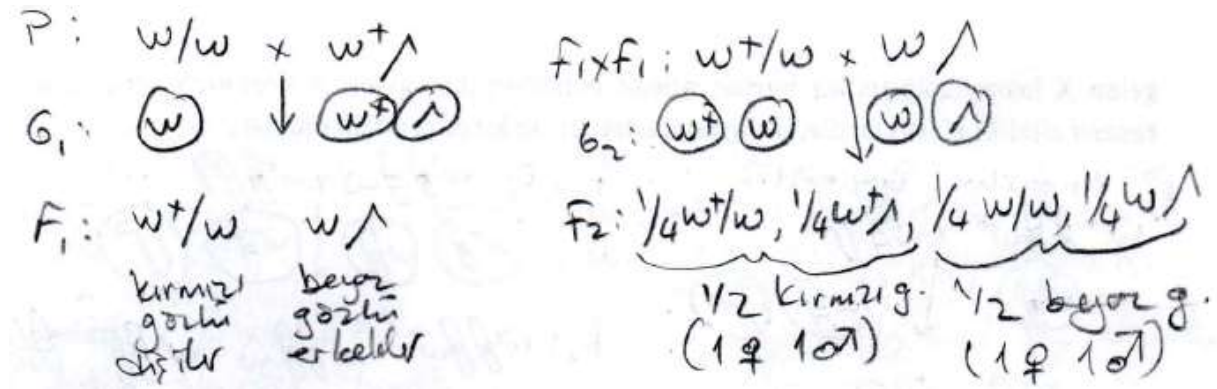 P: w/w x w⁺/\
G₁: w ↓ w⁺ /\
F₁: w⁺/w w/\
kırmızı gözlü dişiler
beyaz gözlü erkekler
F₁xF₁: w⁺/w x w/\
G₂: w⁺ w ↓ w /\
F₂: 1/4 w⁺/w, 1/4 w⁺/\, 1/4 w/w, 1/4 w/\
1/2 kırmızı g. 1/2 beyaz g.
(1♀ 1♂) (1♀ 1♂)